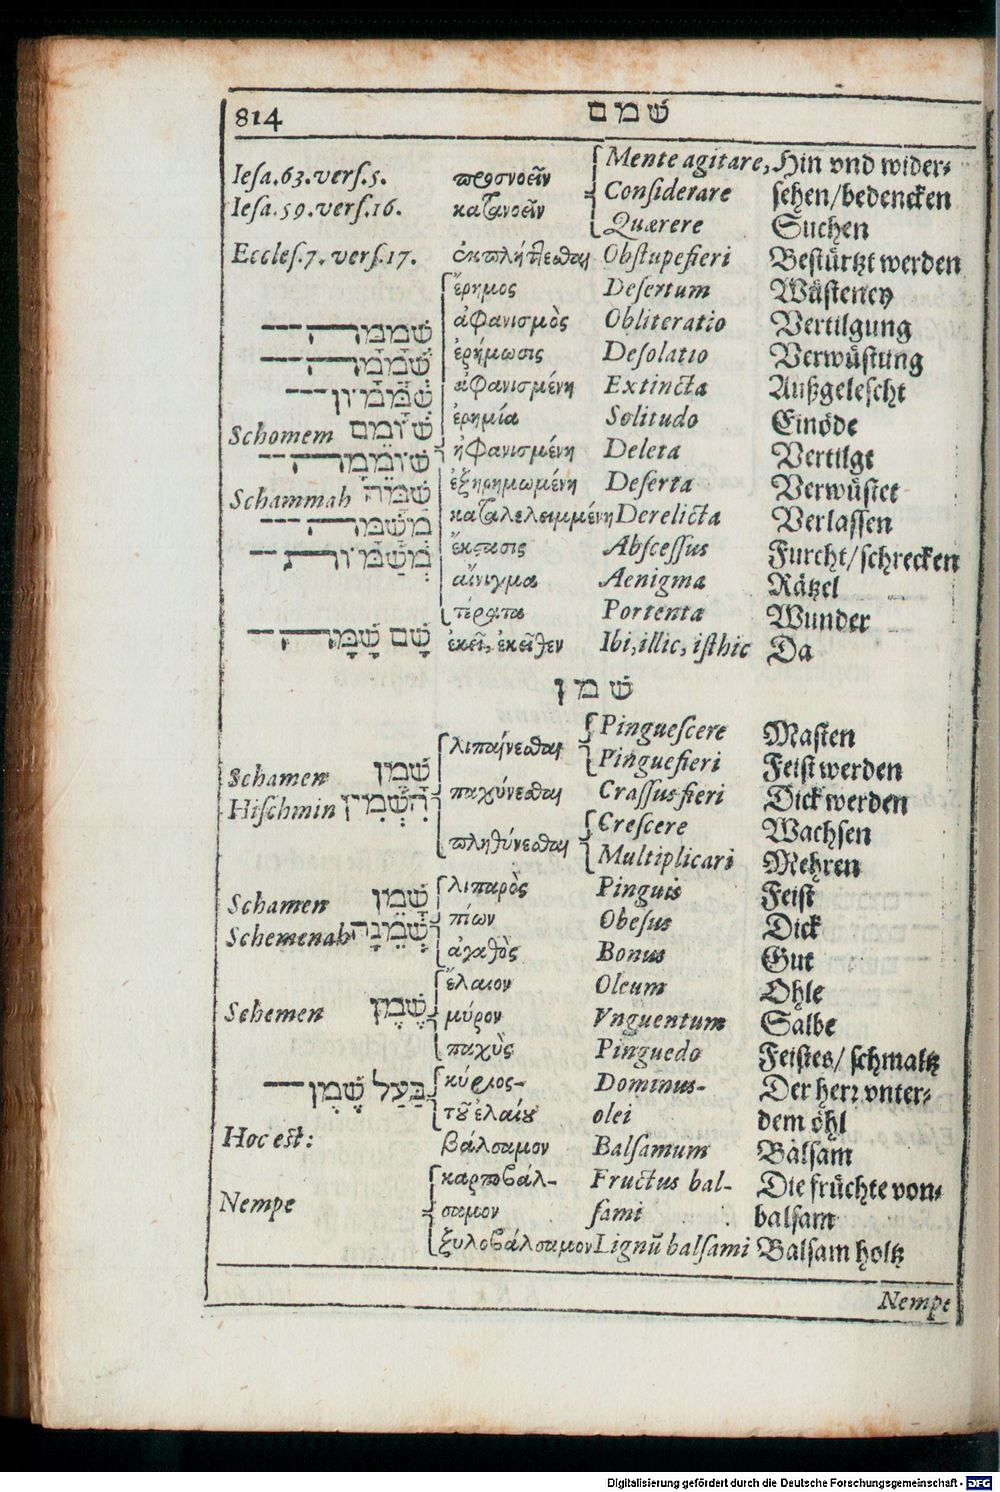 814 שׁמם
Iesa. 63. vers. 5. προσνοεῖν Mente agitare, Hin vnd wider-
Iesa. 59. vers. 16. κατανοεῖν Considerare sehen/bedencken
Quærere Suchen
Eccles. 7. vers. 17. ἐκπλήττεσθαι Obstupefieri Bestürtzt werden
ἔρημος Desertum Wüsteney
שׁממה ἀφανισμὸς Obliteratio Vertilgung
שׁממה ἐρήμωσις Desolatio Verwüstung
שׁממון ἀφανισμένη Extincta Außgelescht
Schomem שׁומם ἐρημία Solitudo Einöde
שׁוממה ἠφανισμένη Deleta Vertilgt
Schammah שׁמה ἐξηρημωμένη Deserta Verwüstet
משׁמה καταλελειμμένη Derelicta Verlassen
משׁמות ἔκστασις Abscessus Furcht/schrecken
αἴνιγμα Aenigma Rätzel
τέρατα Portenta Wunder
שָׁם שָׁמָּה ἐκεῖ, ἐκεῖθεν Ibi, illic, isthic Da
שׁמן
λιπαίνεσθαι Pinguescere Masten
Pinguefieri Feist werden
Schamen שׁמן
Hischmin השׁמין παχύνεσθαι Crassus fieri Dick werden
πληθύνεσθαι Crescere Wachsen
Multiplicari Mehren
Schamen שׁמן λιπαρὸς Pinguis Feist
Schemenah שׁמנה πίων Obesus Dick
ἀγαθὸς Bonus Gut
ἔλαιον Oleum Ohle
Schemen שׁמן μύρον Vnguentum Salbe
παχὺς Pinguedo Feistes/ schmaltz
בעל שׁמן κύριος- Dominus- Der herr vnter-
τοῦ ἐλαίου olei dem öhl
Hoc est: βάλσαμον Balsamum Balsam
καρποβάλ- Fructus bal- Die früchte von-
Nempe σαμον sami balsam
ξυλοβάλσαμον Lignũ balsami Balsam holtz
Nempe
Digitalisierung gefördert durch die Deutsche Forschungsgemeinschaft - DFG